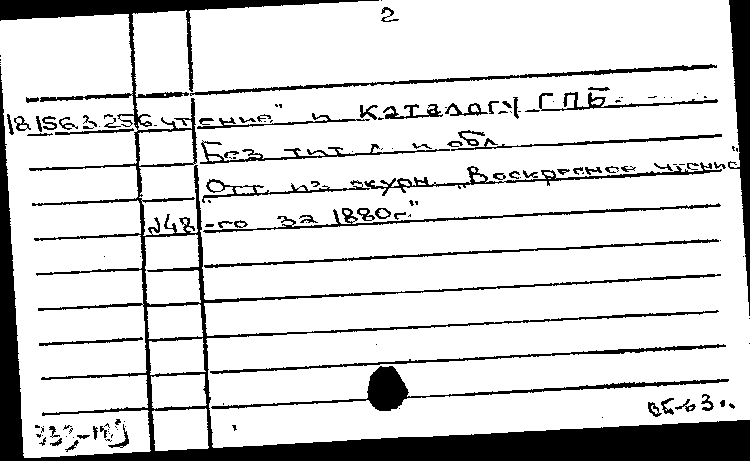 2
18.156.3.256 чтение" и каталогу ГПБ.
Без тит. л. и обл.
Отт. из журн. „Воскресное чтение"
№48-го за 1880г."
ВБ-63г.